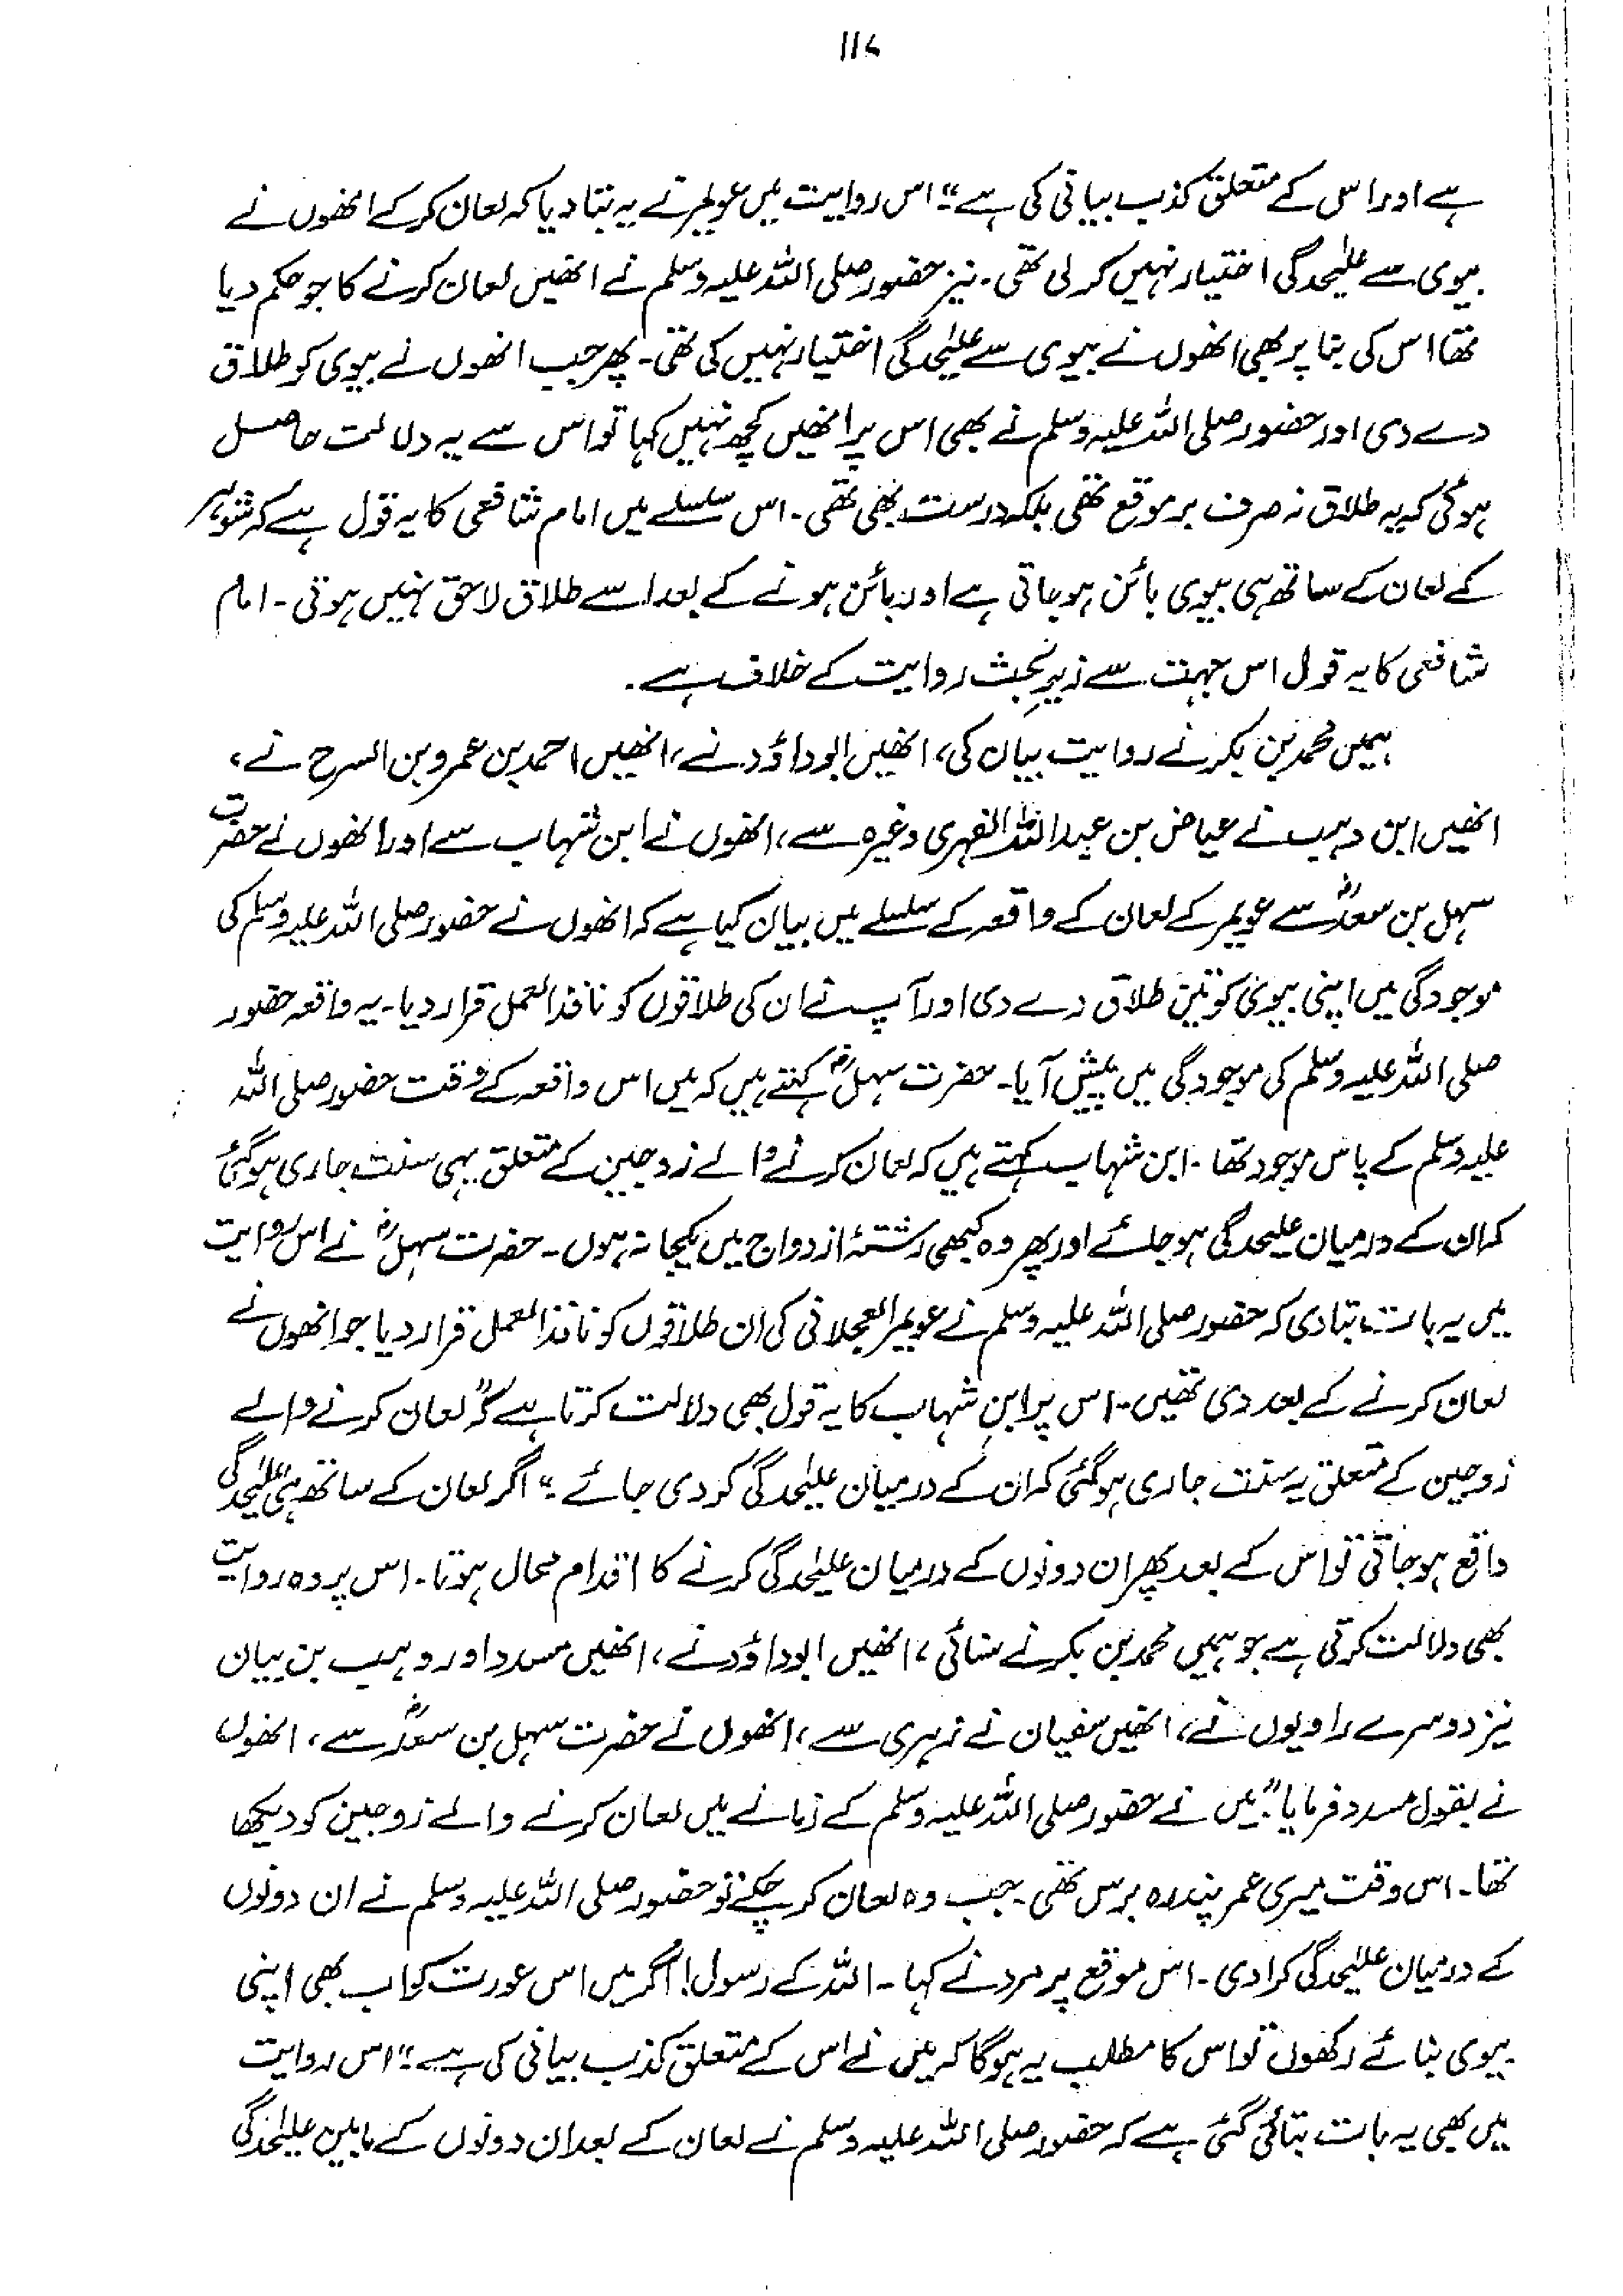 ۱۱۷
ہے اور اس کے متعلق کذب بیانی کی ہے“ اس روایت میں عویمر نے یہ بتا دیا کہ لعان کرکے انھوں نے
بیوی سے علیٰحدگی اختیار نہیں کر لی تھی۔ نیز حضور صلی اللہ علیہ وسلم نے انھیں لعان کرنے کا جو حکم دیا
تھا اس کی بنا پر بھی انھوں نے بیوی سے علیٰحدگی اختیار نہیں کی تھی۔ پھر جب انھوں نے بیوی کو طلاق
دے دی اور حضور صلی اللہ علیہ وسلم نے بھی اس پر انھیں کچھ نہیں کہا تو اس سے یہ دلالت حاصل
ہو گئی کہ یہ طلاق نہ صرف بر موقع تھی بلکہ درست بھی تھی۔ اس سلسلے میں امام شافعی کا یہ قول ہے کہ شوہر
کے لعان کے ساتھ ہی بیوی بائن ہو جاتی ہے اور بائن ہونے کے بعد اسے طلاق لاحق نہیں ہوتی۔ امام
شافعی کا یہ قول اس جہت سے زیرِ بحث روایت کے خلاف ہے۔
ہمیں محمد بن بکر نے روایت بیان کی، انھیں ابو داؤد نے، انھیں احمد بن عمرو بن السرح نے،
انھیں ابن وہب نے عیاض بن عبد اللہ الفہری وغیرہ سے، انھوں نے ابن شہاب سے اور انھوں نے حضرت
سہل بن سعدؓ سے عویمر کے لعان کے واقعہ کے سلسلے میں بیان کیا ہے کہ انھوں نے حضور صلی اللہ علیہ وسلم کی
موجودگی میں اپنی بیوی کو تین طلاق دے دی اور آپ نے ان کی طلاقوں کو نافذ العمل قرار دیا۔ یہ واقعہ حضور
صلی اللہ علیہ وسلم کی موجودگی میں پیش آیا۔ حضرت سہلؓ کہتے ہیں کہ میں اس واقعہ کے وقت حضور صلی اللہ
علیہ وسلم کے پاس موجود تھا۔ ابن شہاب کہتے ہیں کہ لعان کرنے والے زوجین کے متعلق یہی سنت جاری ہو گئی
کہ ان کے درمیان علیحدگی ہو جائے اور پھر وہ کبھی رشتۂ ازدواج میں یکجا نہ ہوں۔ حضرت سہلؓ نے اس روایت
میں یہ بات بتا دی کہ حضور صلی اللہ علیہ وسلم نے عویمر العجلانی کی ان طلاقوں کو نافذ العمل قرار دیا جو انھوں نے
لعان کرنے کے بعد دی تھیں۔ اس پر ابن شہاب کا یہ قول بھی دلالت کرتا ہے کہ ”لعان کرنے والے
زوجین کے متعلق یہ سنت جاری ہو گئی کہ ان کے درمیان علیٰحدگی کر دی جائے۔“ اگر لعان کے ساتھ ہی علیٰحدگی
واقع ہو جاتی تو اس کے بعد پھر ان دونوں کے درمیان علیٰحدگی کرنے کا اقدام محال ہوتا۔ اس پر وہ روایت
بھی دلالت کرتی ہے جو ہمیں محمد بن بکر نے سنائی، انھیں ابو داؤد نے، انھیں مسدد اور وہب بن بیان
نیز دوسرے راویوں نے، انھیں سفیان نے زہری سے، انھوں نے حضرت سہل بن سعدؓ سے، انھوں
نے بقول مسدد فرمایا: ”میں نے حضور صلی اللہ علیہ وسلم کے زمانے میں لعان کرنے والے زوجین کو دیکھا
تھا۔ اس وقت میری عمر پندرہ برس تھی۔ جب وہ لعان کر چکے تو حضور صلی اللہ علیہ وسلم نے ان دونوں
کے درمیان علیٰحدگی کرا دی۔ اس موقع پر مرد نے کہا۔ اللہ کے رسول! اگر میں اس عورت کو اب بھی اپنی
بیوی بنائے رکھوں تو اس کا مطلب یہ ہو گا کہ میں نے اس کے متعلق کذب بیانی کی ہے“ اس روایت
میں بھی یہ بات بتائی گئی ہے کہ حضور صلی اللہ علیہ وسلم نے لعان کے بعد ان دونوں کے مابین علیٰحدگی